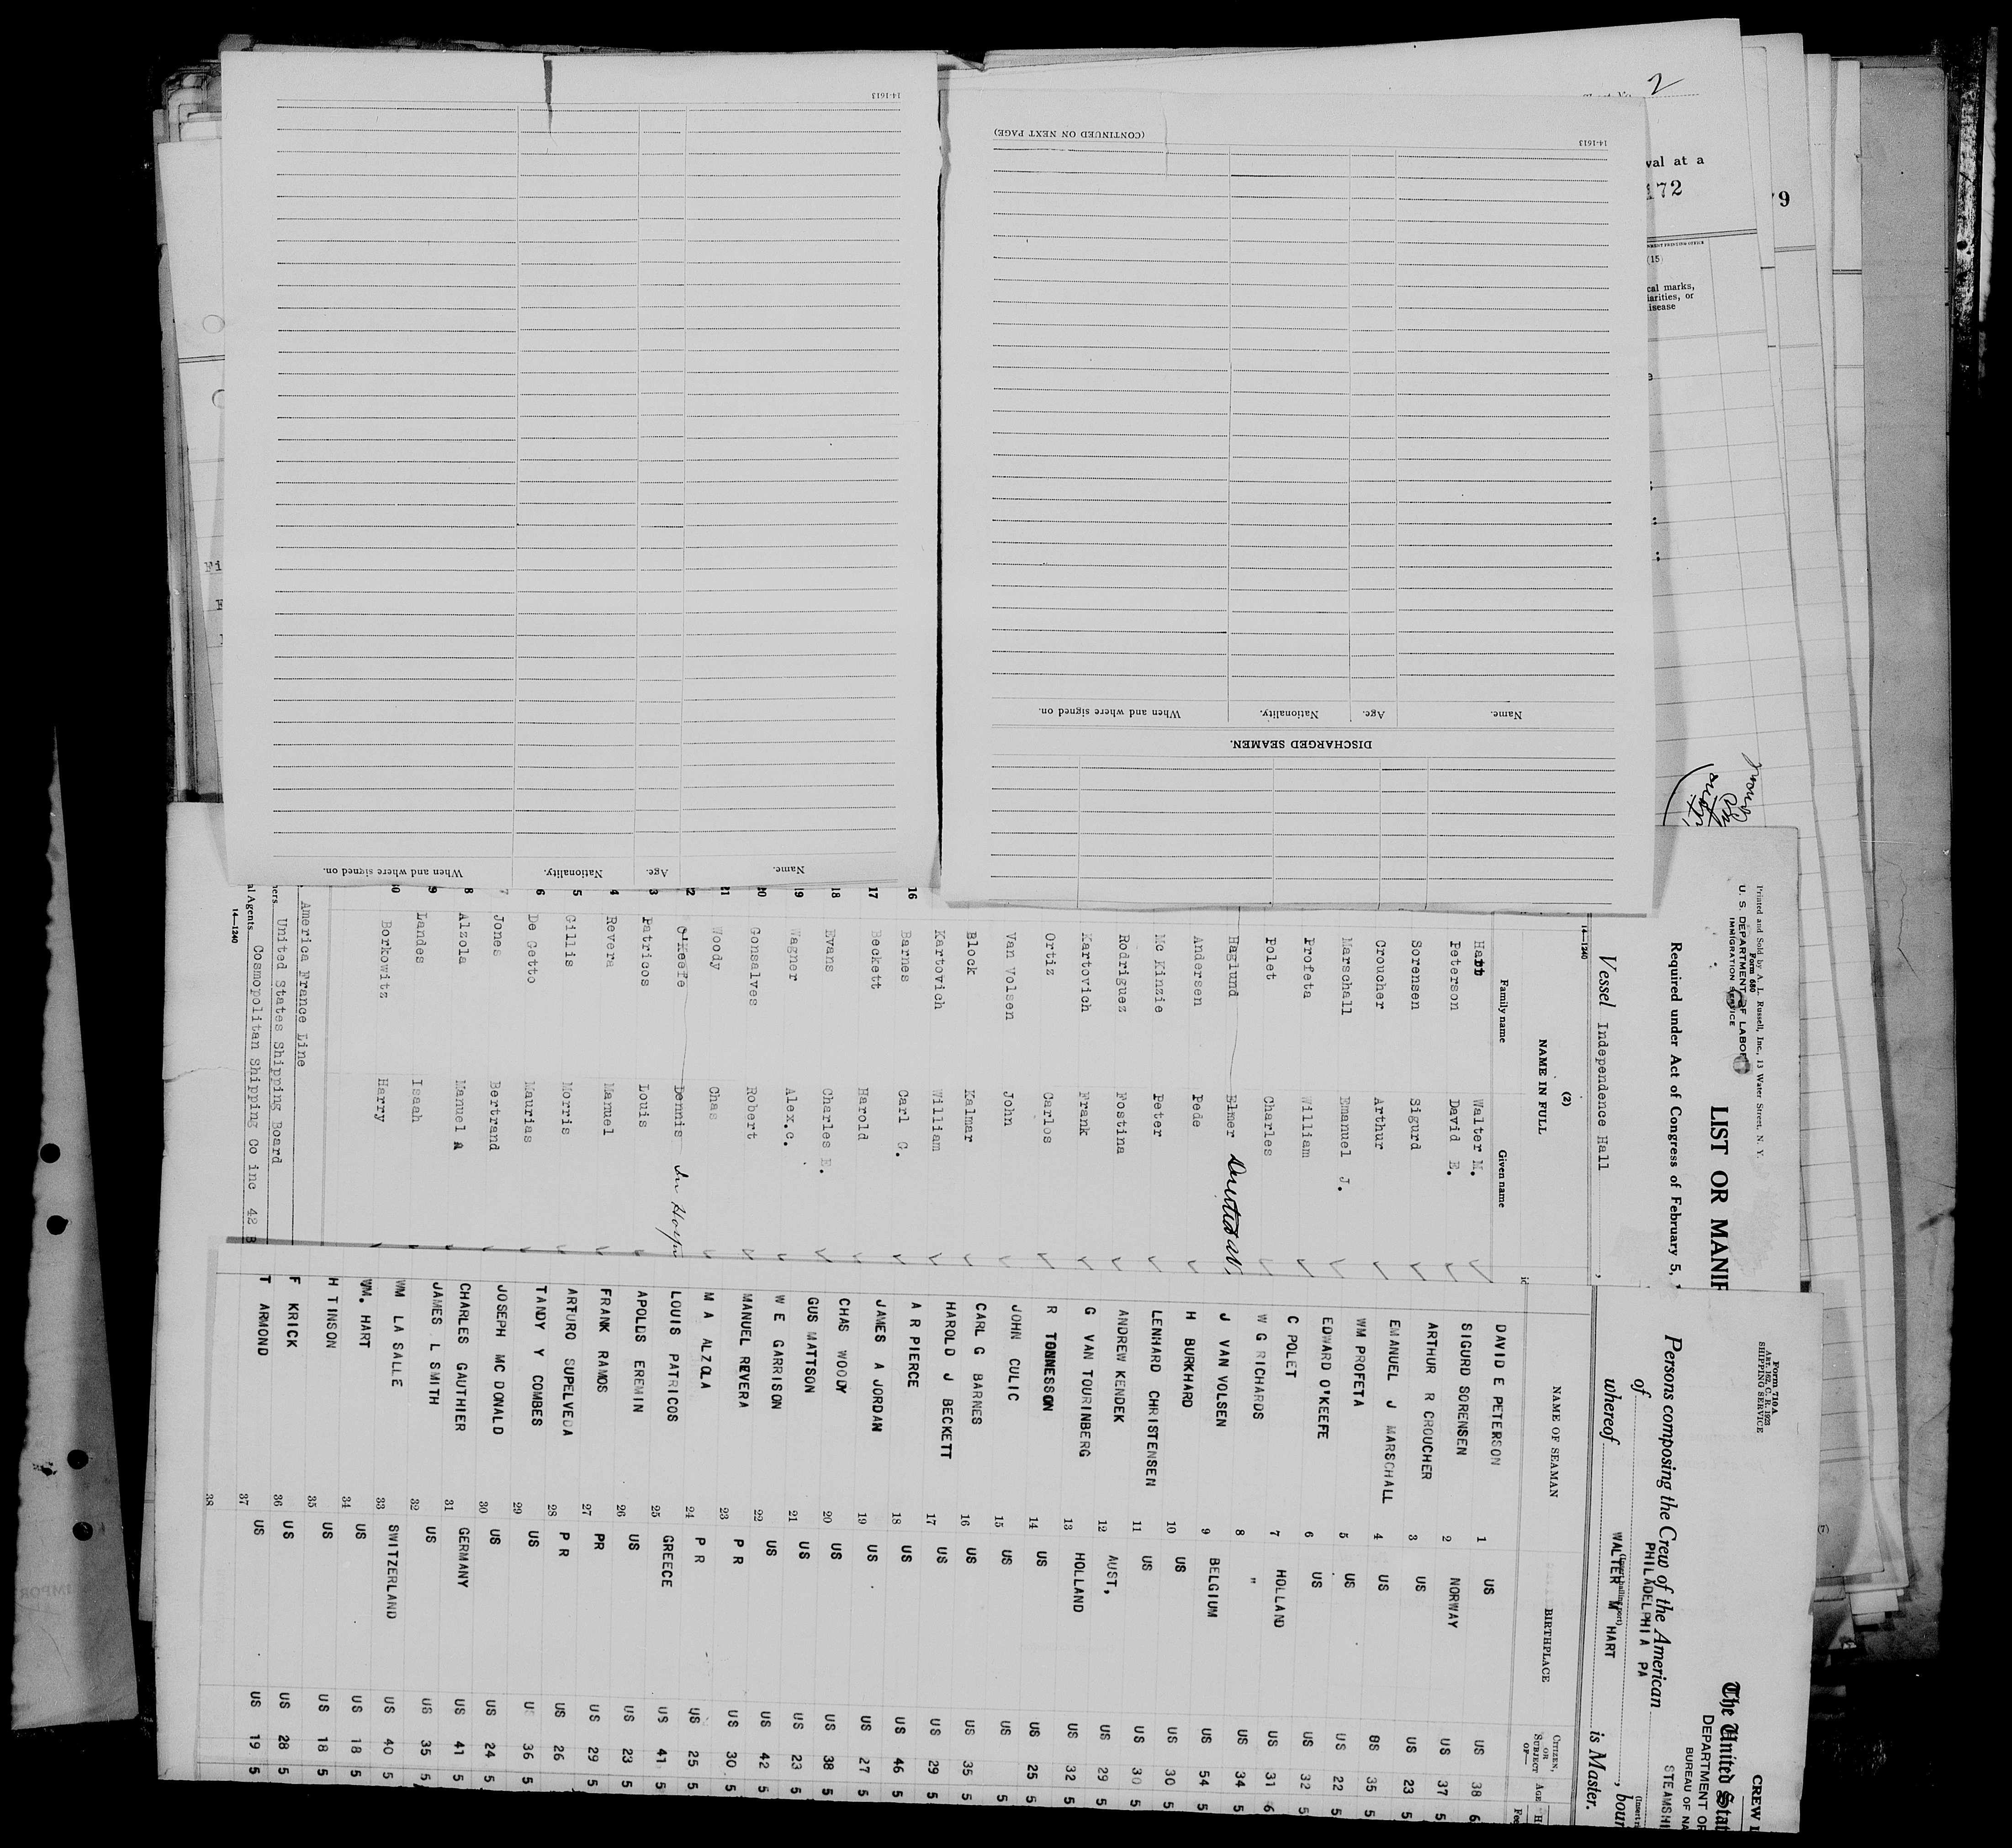 14-1613
When and where signed on.
Nationality.
Age.
Name.
14-1613
(CONTINUED ON NEXT PAGE)
DISCHARGED SEAMEN.
Name.
Age.
Nationality.
When and where signed on.
2
val at a
172
79
(15)
cal marks,
iarities, or
isease
Printed and Sold by A. L. Russell, Inc., 13 Water Street, N. Y.
Form 680
U. S. DEPARTMENT OF LABOR
IMMIGRATION SERVICE
LIST OR MANIF
Required under Act of Congress of February 5,
Vessel Independence Hall
14-1240
(2)
NAME IN FULL
Family name Given name
Hart Walter M.
Peterson David E.
Sorensen Sigurd
Croucher Arthur
Marschall Emanuel J.
Profeta William
Polet Charles
Haglund Elmer
Andersen Pede
Mc Kinzie Peter
Rodriguez Fostina
Kartovich Frank
Ortiz Carlos
Van Volsen John
Block Kalmar
Kartovich William
16 Barnes Carl G.
17 Beckett Harold
18 Evans Charles E.
19 Wagner Alex.c.
20 Gonsalves Robert
21 Woody Chas
22 O'Keefe Dennis In Hosp
3 Patricos Louis
4 Revera Manuel
5 Gillis Morris
6 De Getto Maurias
7 Jones Bertrand
8 Alzola Manuel A
9 Landes Isaah
30 Borkowitz Harry
America France Line
ners United States Shipping Board
al Agents Cosmopolitan Shipping Co inc 42 B
14-1240
Form 710 A
ART. 162, C. R. 1923
SHIPPING SERVICE
CREW L
The United Stat
DEPARTMENT OF
BUREAU OF NA
STEAMSHI
Persons composing the Crew of the American
of PHILADELPHIA PA
(Insert hailing port)
whereof WALTER M HART is Master.
, boun
NAME OF SEAMAN BIRTHPLACE CITIZEN, OR SUBJECT OF— AGE
DAVID E PETERSON 1 US US 38 6
SIGURD SORENSEN 2 NORWAY US 37 5
ARTHUR R CROUCHER 3 US US 23 5
EMANUEL J MARSCHALL 4 US 8S 35 5
WM PROFETA 5 US US 22 5
EDWARD O'KEEFE 6 US US 32 5
C POLET 7 HOLLAND US 31 6
W G RICHARDS 8 " US 34 5
J VAN VOLSEN 9 BELGIUM US 54 5
H BURKHARD 10 US US 30 5
LENHARD CHRISTENSEN 11 US US 30 5
ANDREW KENDEK 12 AUST, US 29 5
G VAN TOURINBERG 13 HOLLAND US 32 5
R TONNESSON 14 US US 25
JOHN CULIC 15 US US
CARL G BARNES 16 US US 35 5
HAROLD J BECKETT 17 US US 29 5
A R PIERCE 18 US US 46 5
JAMES A JORDAN 19 US US 27 5
CHAS WOODY 20 US US 38 5
GUS MATTSON 21 US US 23 5
W E GARRISON 22 US US 42 5
MANUEL REVERA 23 P R US 30 5
M A ALZOLA 24 P R US 25 5
LOUIS PATRICOS 25 GREECE US 41 5
APOLDS EREMIN 26 US US 23 5
FRANK RAMOS 27 PR US 29 5
ARTURO SUPELVEDA 28 P R US 26 5
TANDY Y COMBES 29 US US 36 5
JOSEPH MC DONALD 30 US US 24 5
CHARLES GAUTHIER 31 GERMANY US 41 5
JAMES L SMITH 32 US US 35 5
WM LA SALLE 33 SWITZERLAND US 40 5
WM. HART 34 US US 18 5
H TINSON 35 US US 18 5
F KRICK 36 US US 28 5
T ARMOND 37 US US 19 5
38